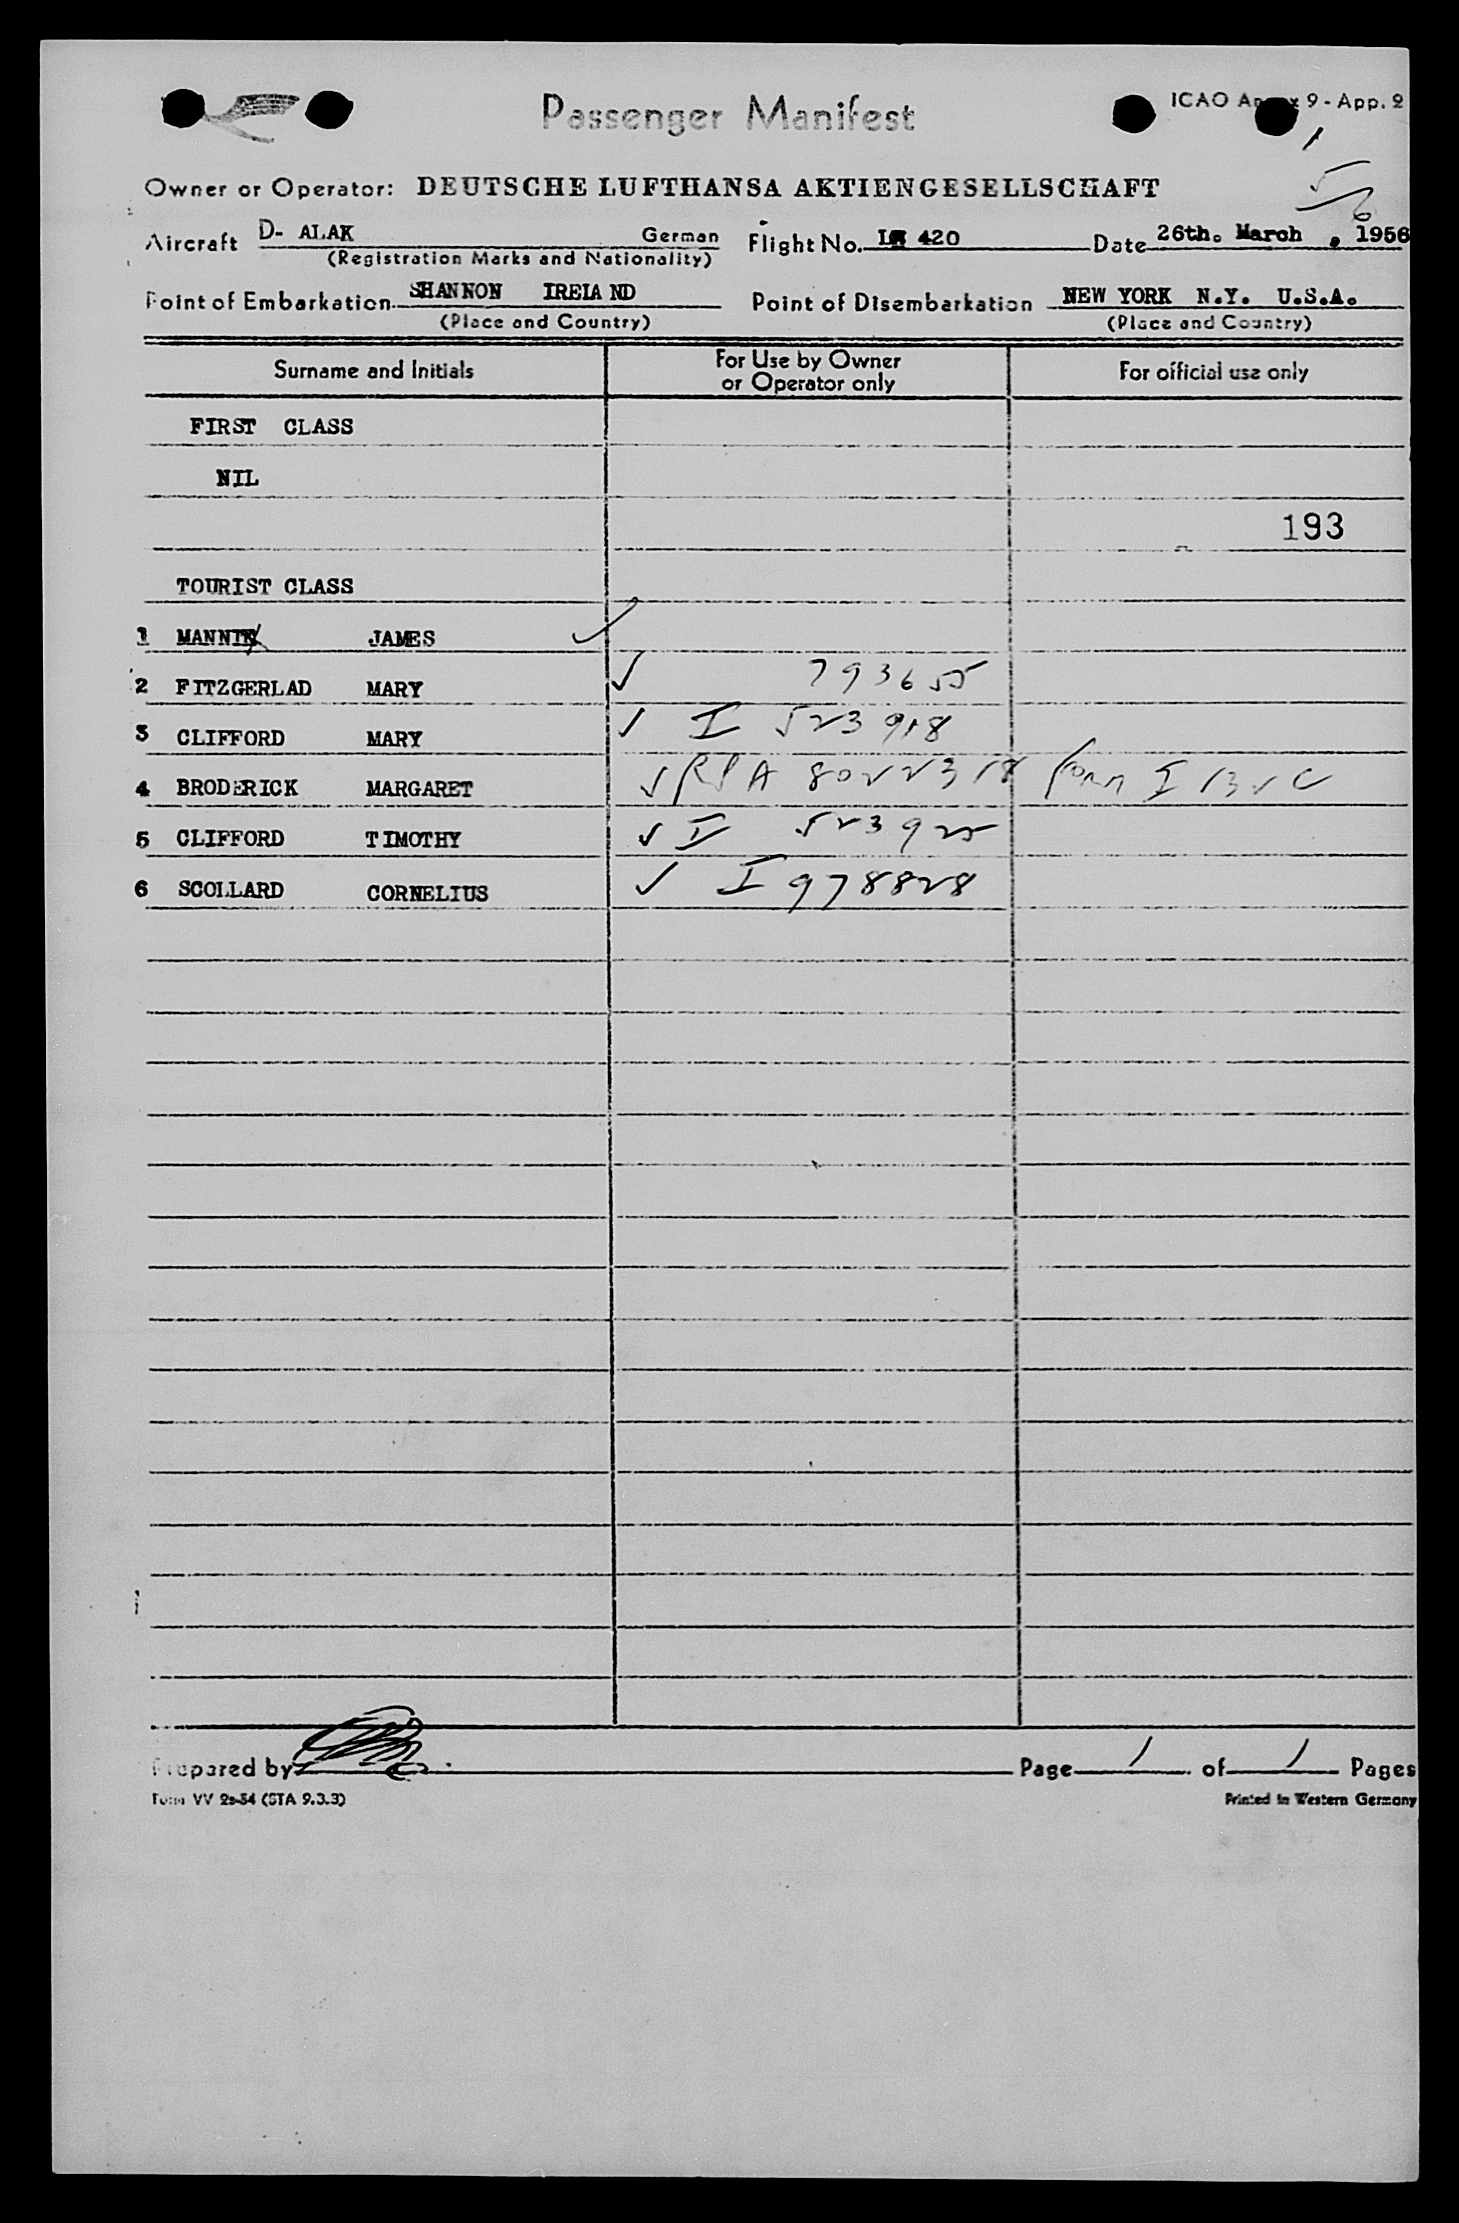 Passenger Manifest
ICAO Annex 9 - App. 2
Owner or Operator: DEUTSCHE LUFTHANSA AKTIENGESELLSCHAFT
Aircraft D- ALAK German Flight No. LH 420 Date 26th. March, 1956
(Registration Marks and Nationality)
Point of Embarkation SHANNON IRELAND Point of Disembarkation NEW YORK N.Y. U.S.A.
(Place and Country) (Place and Country)
Surname and Initials For Use by Owner or Operator only For official use only
FIRST CLASS
NIL
193
TOURIST CLASS
1 MANNIX JAMES ✓
2 FITZGERLAD MARY ✓ 793655
3 CLIFFORD MARY ✓ I 523918
4 BRODERICK MARGARET ✓ A 8022318 Form I 132 C
5 CLIFFORD TIMOTHY ✓ I 523925
6 SCOLLARD CORNELIUS ✓ I 978828
Prepared by Page 1 of 1 Pages
Form VV 2s-54 (STA 9.3.3) Printed in Western Germany